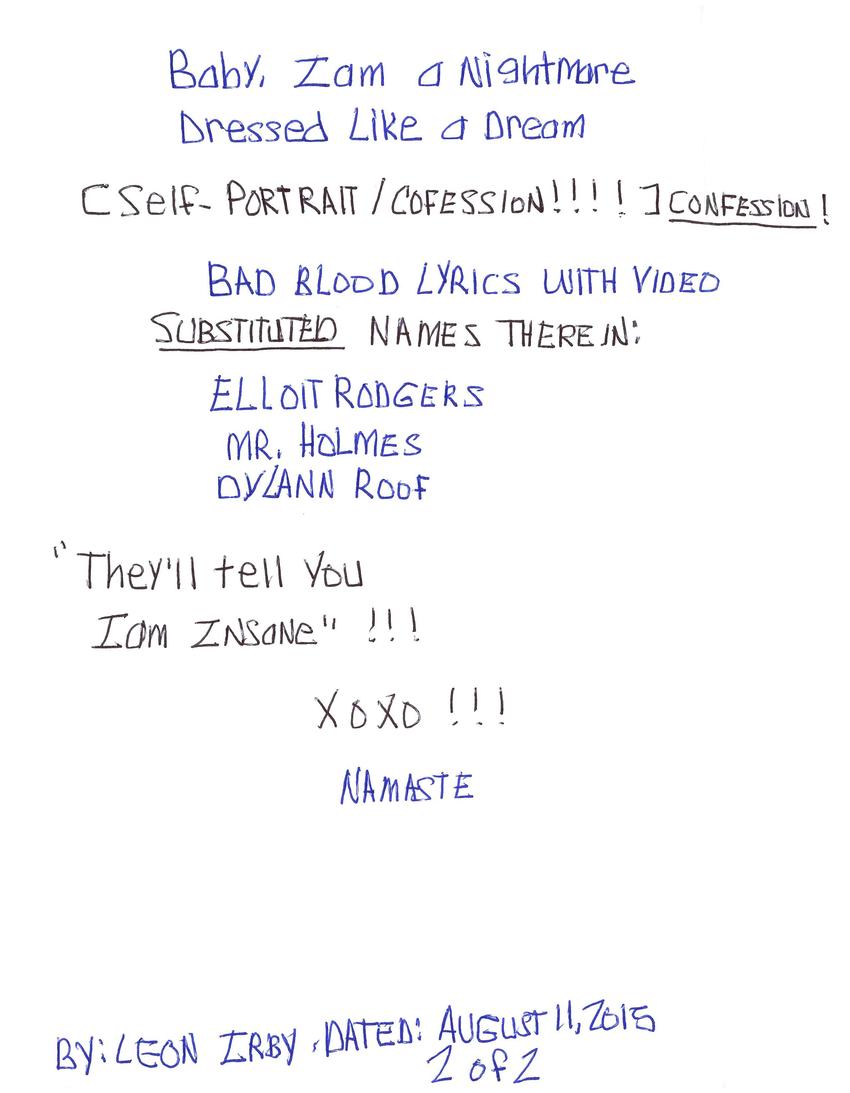 Baby, I am a Nightmare
Dressed Like a Dream
[Self-PORTRAIT/COFESSION!!!!] CONFESSION!
BAD BLOOD LYRICS WITH VIDEO
SUBSTITUTED NAMES THEREIN:
ELLOIT RODGERS
MR. HOLMES
DYLANN ROOF
"They'll tell you
I am INSANE" !!!
XOXO !!!
NAMASTE
BY: LEON IRBY, DATED: AUGUST 11, 2015
2 of 2